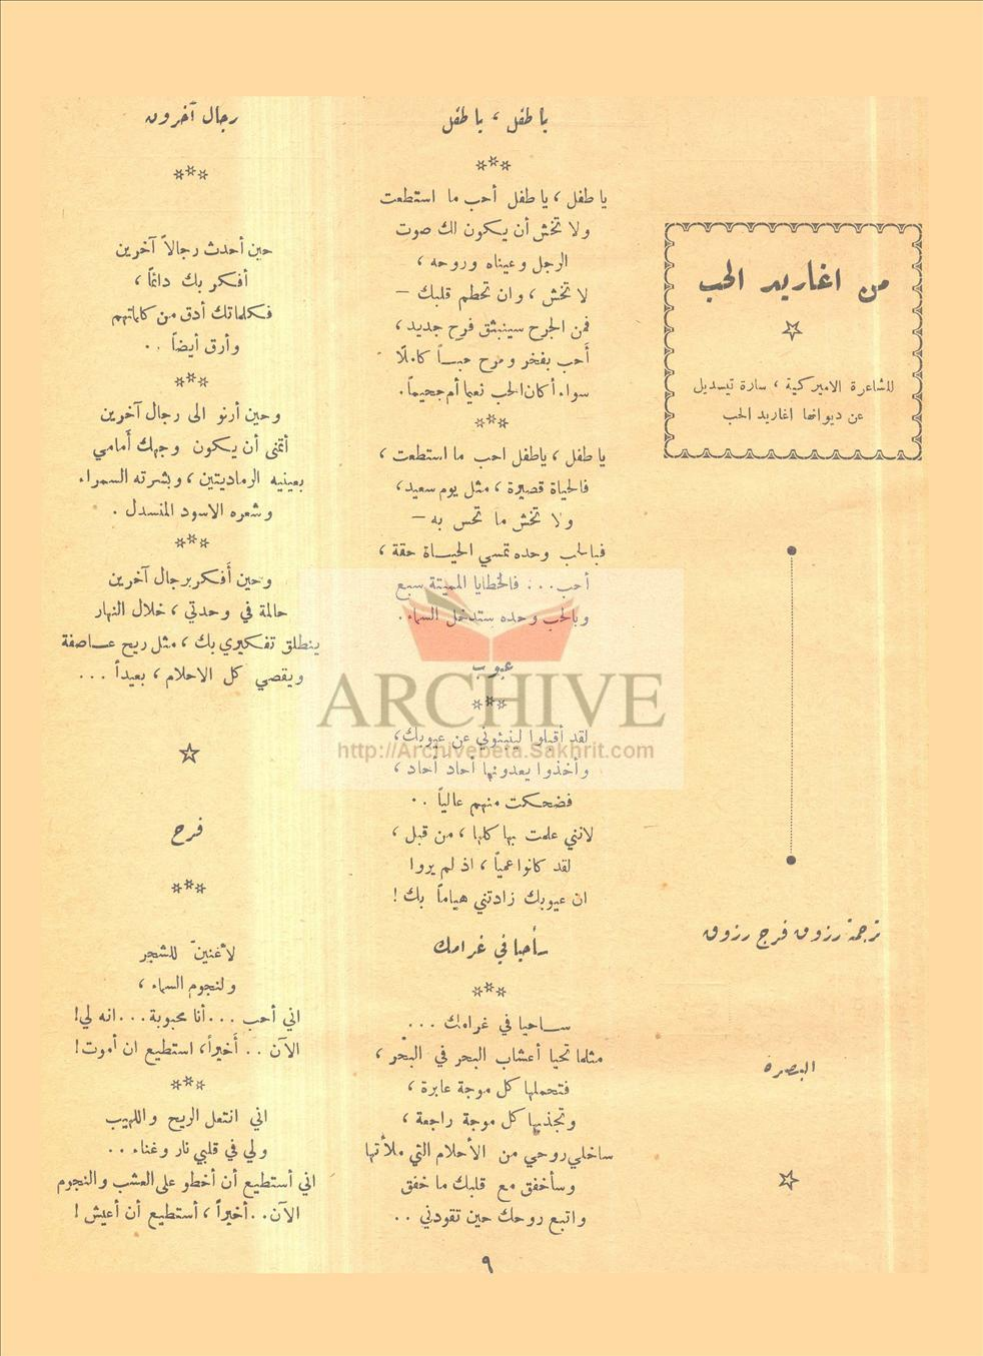 من اغاريد الحب
للشاعرة الاميركية ، سارة تيسديل
عن ديوانها اغاريد الحب
ترجمة رزوق فرج رزوق
البصرة
يا طفل ، يا طفل
يا طفل ، يا طفل أحب ما استطعت
ولا تخش أن يكون لك صوت
الرجل وعيناه وروحه ،
لا تخش ، وان تحطم قلبك –
فمن الجرح سينبثق فرح جديد ،
أحب بفخر ومرح حبـاً كاملاً
سواء أكان الحب نعيما أم جحيماً .
يا طفل ، يا طفل احب ما استطعت ،
فالحياة قصيرة ، مثل يوم سعيد ،
ولا تخش ما تحس به –
فبالحب وحده تمسي الحيـاة حقة ،
أحب ... فالخطايا المميتة سبع
وبالحب وحده ستدخل السماء .
عيوب
لقد أقبلوا لينبئوني عن عيوبك ،
وأخذوا يعدونها أحاد أحاد ،
فضحكت منهم عالياً ..
لانني علمت بها كلها ، من قبل ،
لقد كانوا عمياً ، اذ لم يروا
ان عيوبك زادتني هياماً بك !
سأحيا في غرامك
سـاحيا في غرامك ...
مثلما تحيا أعشاب البحر في البحر ،
فتحملها كل موجة عابرة ،
وتجذبها كل موجة راجعة ،
ساخلي روحي من الأحلام التي ملأتها
وسأخفق مع قلبك ما خفق
واتبع روحك حين تقودني ..
رجال آخرون
حين أحدث رجالاً آخرين
أفكر بك دائماً ،
فكلماتك أدق من كلماتهم
وأرق أيضاً ..
وحين أرنو الى رجال آخرين
أتمنى أن يكون وجهك أمامي
بعينيه الرماديتين ، وبشرته السمراء
وشعره الاسود المنسدل .
وحين أفكر برجال آخرين
حالمة في وحدتي ، خلال النهار
ينطلق تفكيري بك ، مثل ريح عـاصفة
ويقصي كل الاحلام ، بعيداً ...
فرح
لأغنينّ للشجر
ولنجوم السماء ،
اني أحب ... أنا محبوبة ... انه لي !
الآن .. أخيراً ، استطيع ان أموت !
اني انتعل الريح واللهيب
ولي في قلبي نار وغناء ..
اني أستطيع أن أخطو على العشب والنجوم
الآن .. أخيراً ، أستطيع أن أعيش !
٩
ARCHIVE
http://Archivebeta.Sakhrit.com